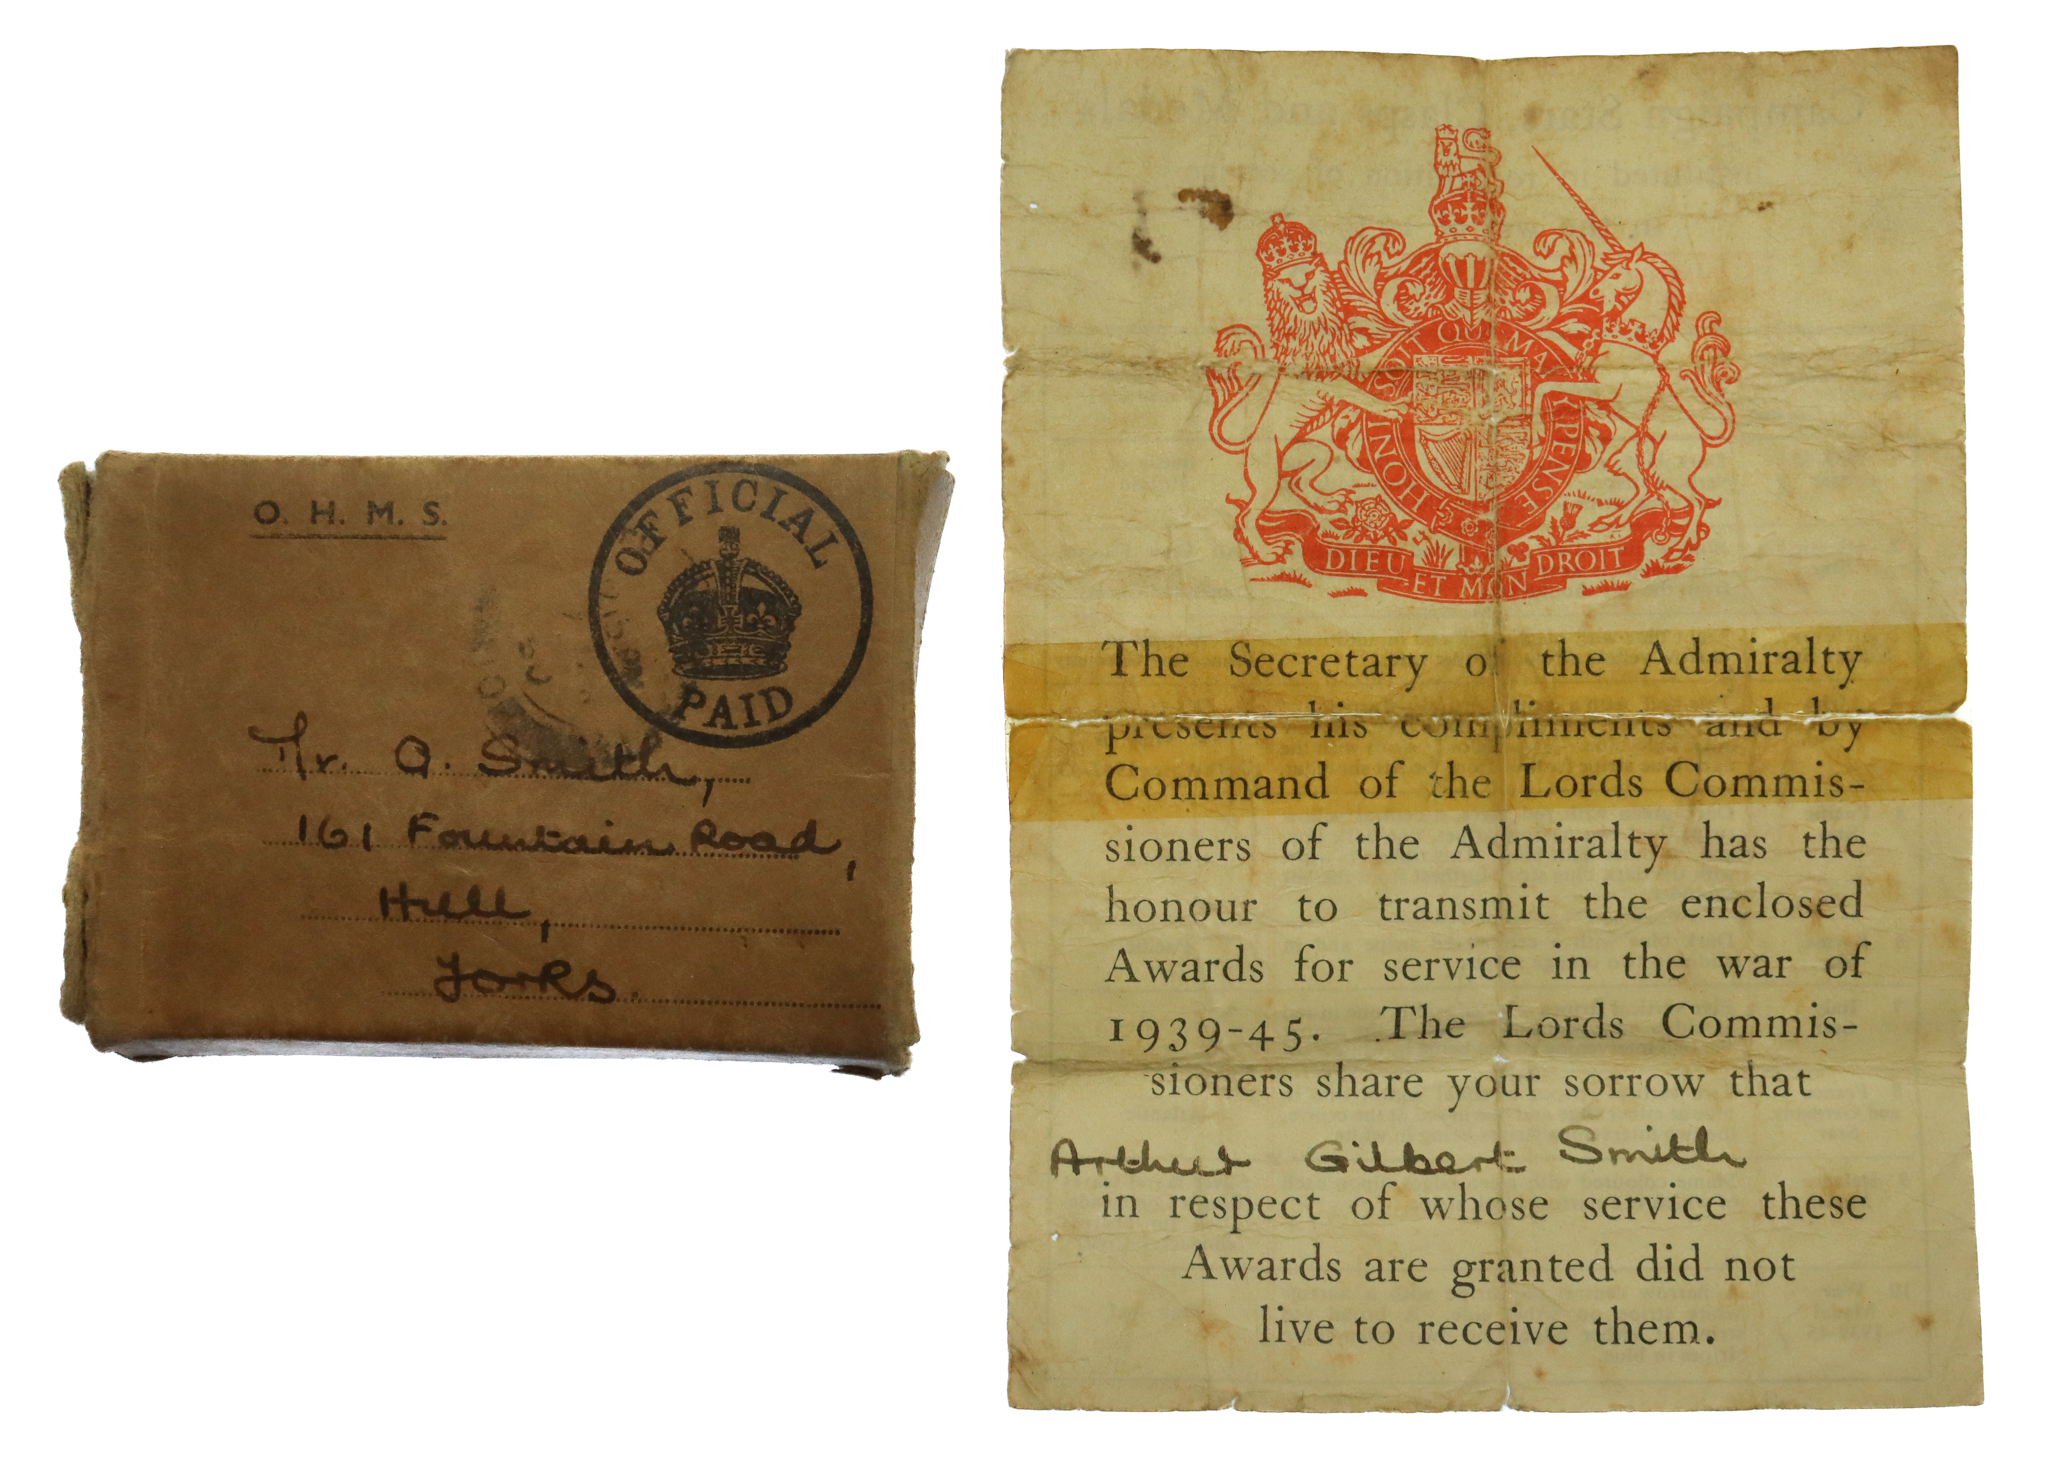 O. H. M. S.
OFFICIAL
PAID
Mr. A. Smith,
161 Fountain Road,
Hull,
Yorks.
HONI SOIT QUI MAL Y PENSE
DIEU ET MON DROIT
The Secretary of the Admiralty
presents his compliments and by
Command of the Lords Commis-
sioners of the Admiralty has the
honour to transmit the enclosed
Awards for service in the war of
1939-45. The Lords Commis-
sioners share your sorrow that
Arthur Gilbert Smith
in respect of whose service these
Awards are granted did not
live to receive them.